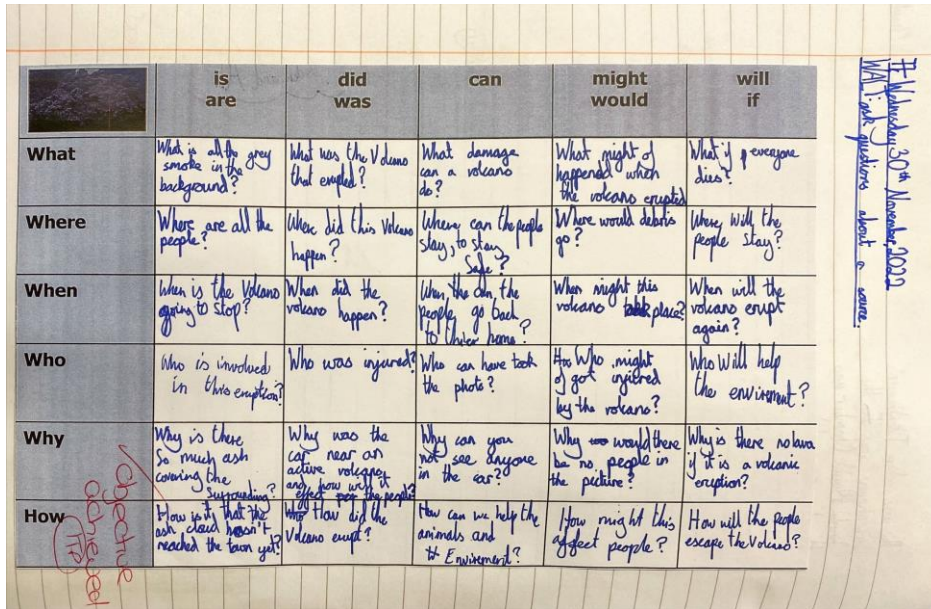 # Wednesday 30th November, 2022
WALT: ask questions about a source.
is
are
did
was
can
might
would
will
if
What
What is all the grey
smoke in the
background?
What was the Volcano
that erupted?
What damage
can a volcano
do?
What might of
happened which
the volcano erupted
What if everyone
dies?
Where
Where are all the
people?
Where did this Volcano
happen?
Where can the people
stay, to stay
safe?
Where would debris
go?
Where will the
people stay?
When
When is the Volcano
going to stop?
When did the
volcano happen?
When the can, the
people, go back
to their home?
When might this
volcano place?
When will the
volcano erupt
again?
Who
Who is involved
in this eruption?
Who was injured?
Who can have took
the photo?
Who might
of got injered
by the volcano?
Who Will help
the envirement?
Why
Why is there
so much ash
covering the
surrounding?
Why was the
car near an
active volcano
and how will it
effect the people?
Why can you
not see anyone
in the car?
Why would there
be no people in
the picture?
Why is there no lava
if it is a volcanic
eruption?
How
How is it that the
ash cloud hasn't
reached the town yet?
How did the
Volcano erupt?
How can we help the
animals and
Envirement?
How might this
affect people?
How will the people
escape the Volcano?
objective
achieved